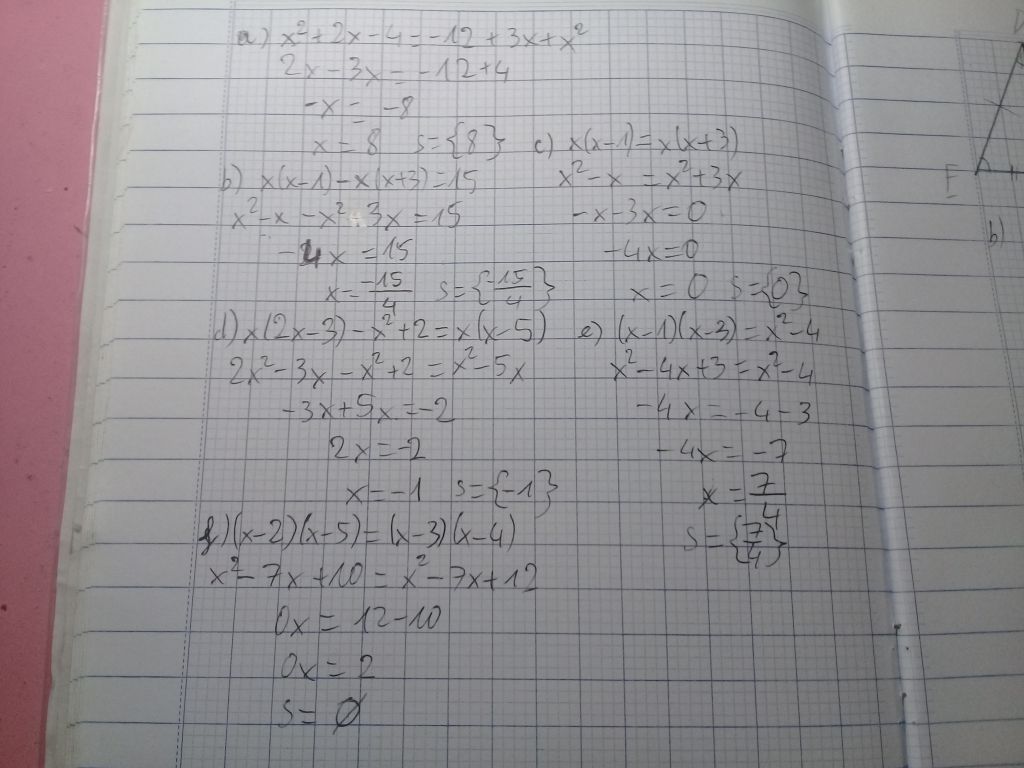 a) x²+2x-4=-12+3x+x²
2x-3x=-12+4
-x=-8
x=8 S={8}
b) x(x-1)-x(x+3)=15
x²-x-x²-3x=15
-4x=15
x=-15/4 S={-15/4}
c) x(x-1)=x(x+3)
x²-x=x²+3x
-x-3x=0
-4x=0
x=0 S={0}
d) x(2x-3)-x²+2=x(x-5)
2x²-3x-x²+2=x²-5x
-3x+5x=-2
2x=-2
x=-1 S={-1}
e) (x-1)(x-3)=x²-4
x²-4x+3=x²-4
-4x=-4-3
-4x=-7
x=7/4
S={7/4}
f) (x-2)(x-5)=(x-3)(x-4)
x²-7x+10=x²-7x+12
0x=12-10
0x=2
S=∅
E
b)